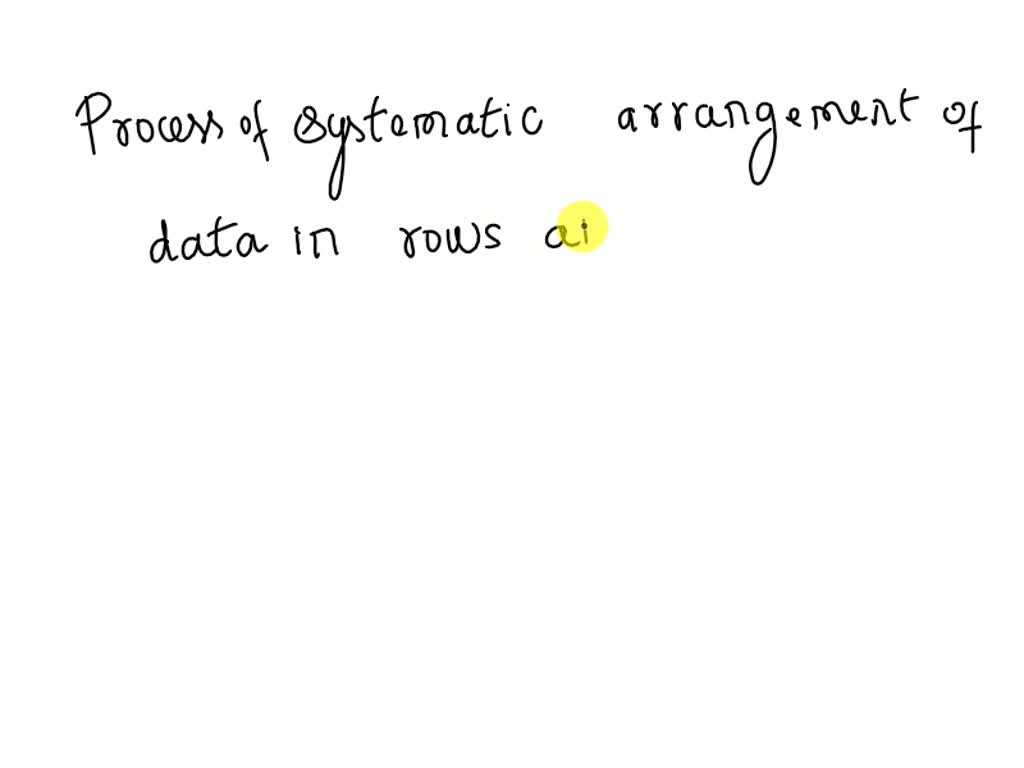 Process of systematic arrangement of
data in rows ai